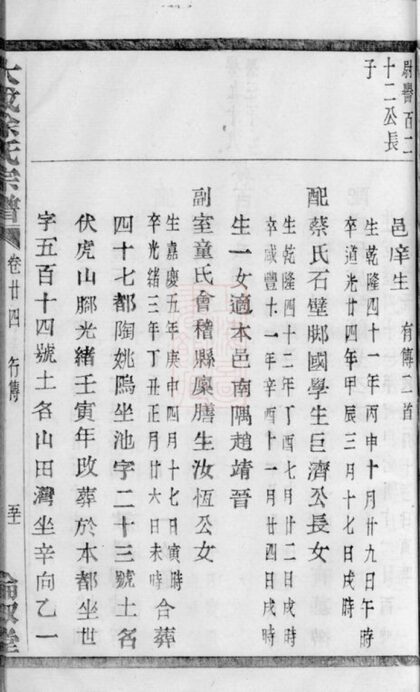 尉醫百二
十二公長
子
邑庠生 有傳二首
生乾隆四十一年丙申十月廿九日午時
卒道光廿四年甲辰三月十七日戌時
配蔡氏石壁腳國學生巨濟公長女
生乾隆四十二年丁酉七月廿二日戌時
卒咸豐十一年辛酉十一月廿四日戌時
生一女適本邑南隅趙靖晉
副室童氏會稽縣廩膳生汝恆公女
生嘉慶五年庚申四月十七日寅時
卒光緒三年丁丑正月廿六日未時
合葬
四十七都陶姚隖坐池字二十三號土名
伏虎山腳光緒壬寅年改葬於本都坐世
字五百十四號土名山田灣坐辛向乙一
余氏宗譜
卷廿四 行傳
倫敘堂